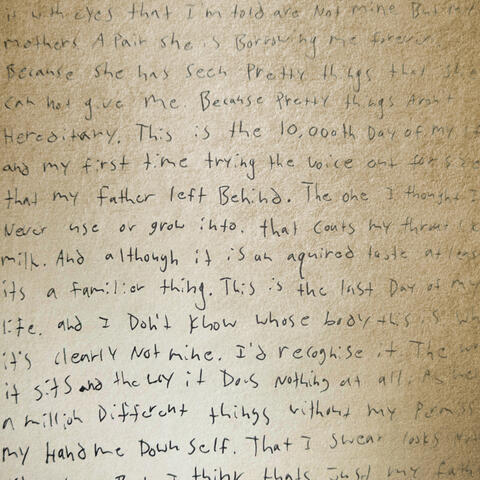 it with eyes that I'm told are Not mine But my
mothers A Pair she is Borrowing me forever
Because she has seen Pretty things that she
can not give me. Because Pretty things Aren't
Hereditary. This is the 10,000th Day of my
and my first time trying the voice out for
that my father left Behind. The one I thought I
Never use or grow into. that coats my throat
milk. And although it is an aquired taste at least
its a familior thing. This is the last Day of my
life. and I Don't know whose body this is
it's clearly Not mine. I'd recognise it. The
it sits and the way it Does Nothing at all.
a million Different things without my
my Hand me Down self. That I swear looks
But I think thats Just my